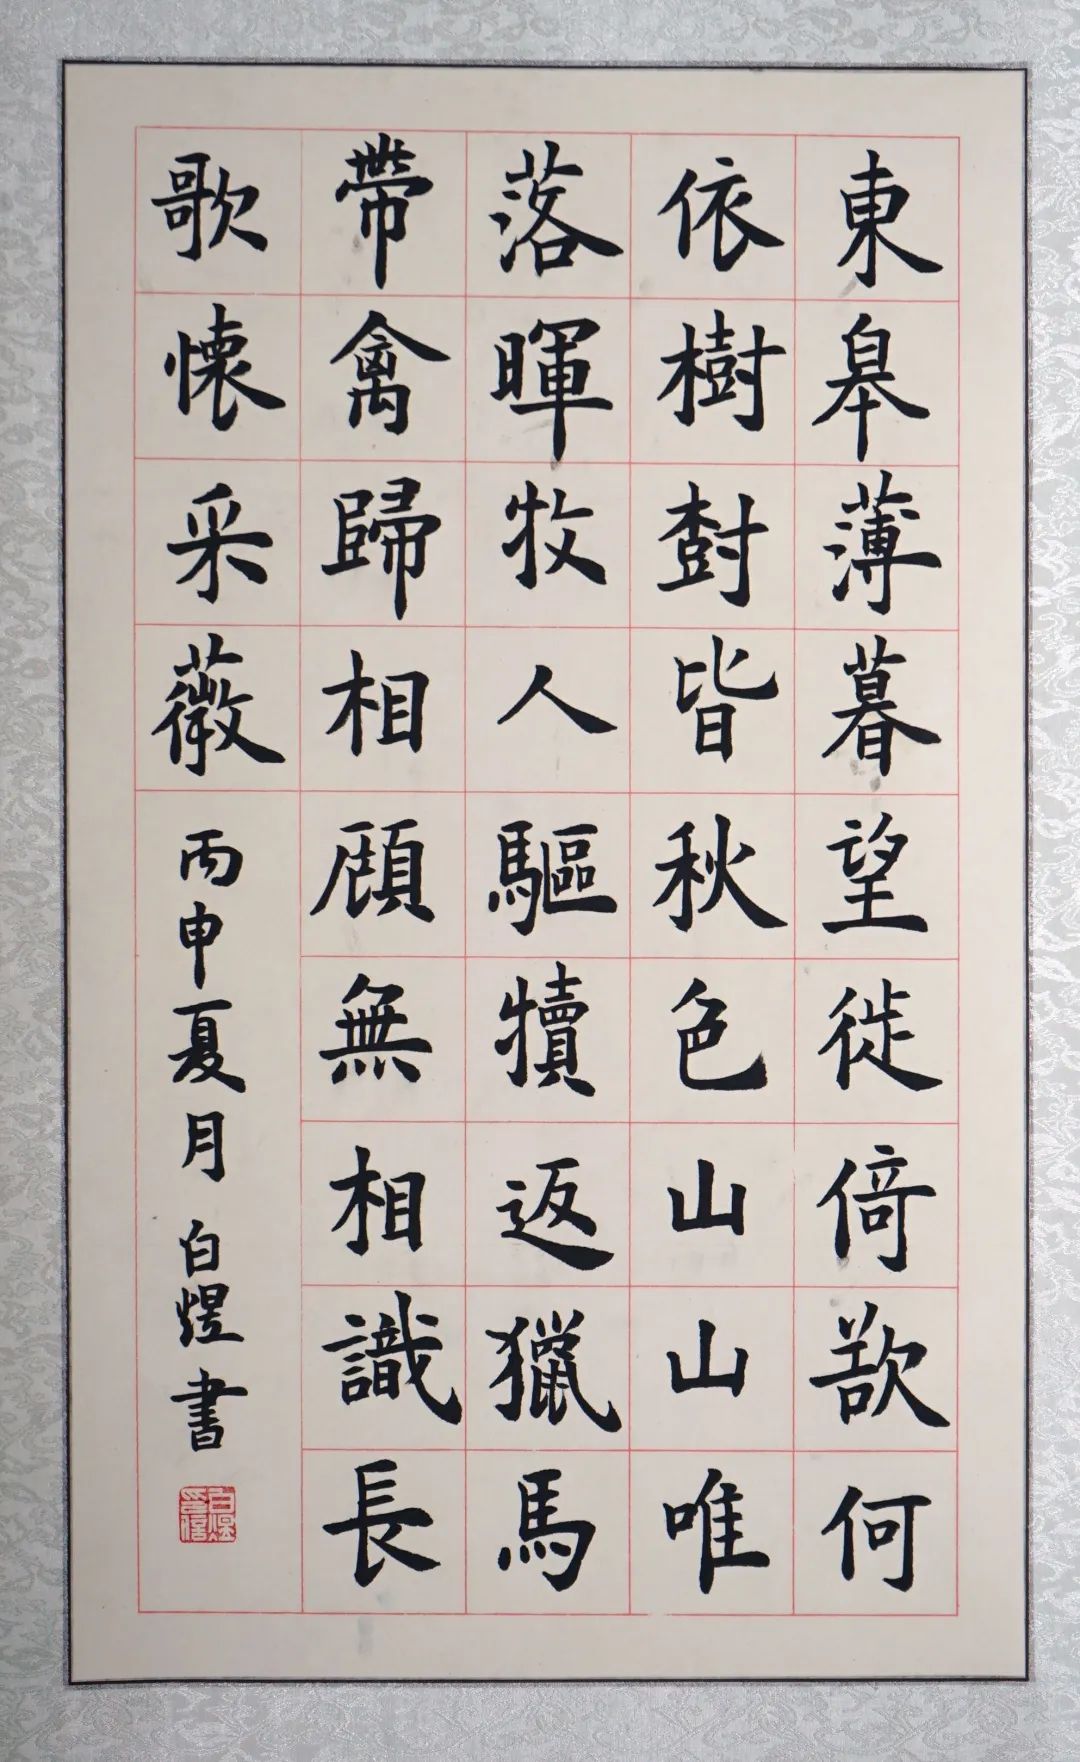 東皋薄暮望徙倚欲何
依樹尌皆秋色山山唯
落暉牧人驅犢返獵馬
帶禽歸相頋無相識長
歌懐采薇
丙申夏月 白煜書
白煜印信